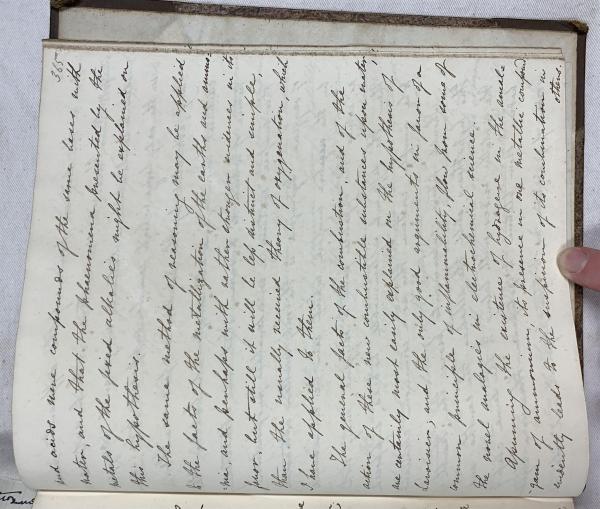 365
and acids were compounds of the same bases with
water, and that the phænomena presented by the
metals of the fixed alkalies might be explained on
this hypothesis.
The same method of reasoning may be applied
to the facts of the metallization of the earths and ammo-
nia, and perhaps with rather stronger evidences in its
favor, but still it will be less distinct and simple,
than the usually received theory of oxygenation, which
I have applied to them.
The general facts of the combustion, and of the
action of these new combustible substances upon water,
are certainly most easily explained on the hypothesis of
Lavoisier; and the only good arguments in favor of a
common principle of inflammability, flow from some of
the novel analogies in electrochemical science.
Assuming the existence of hydrogene in the amal-
gam of ammonium, its presence in one metallic compound
evidently leads to the suspicion of its combination in
others.